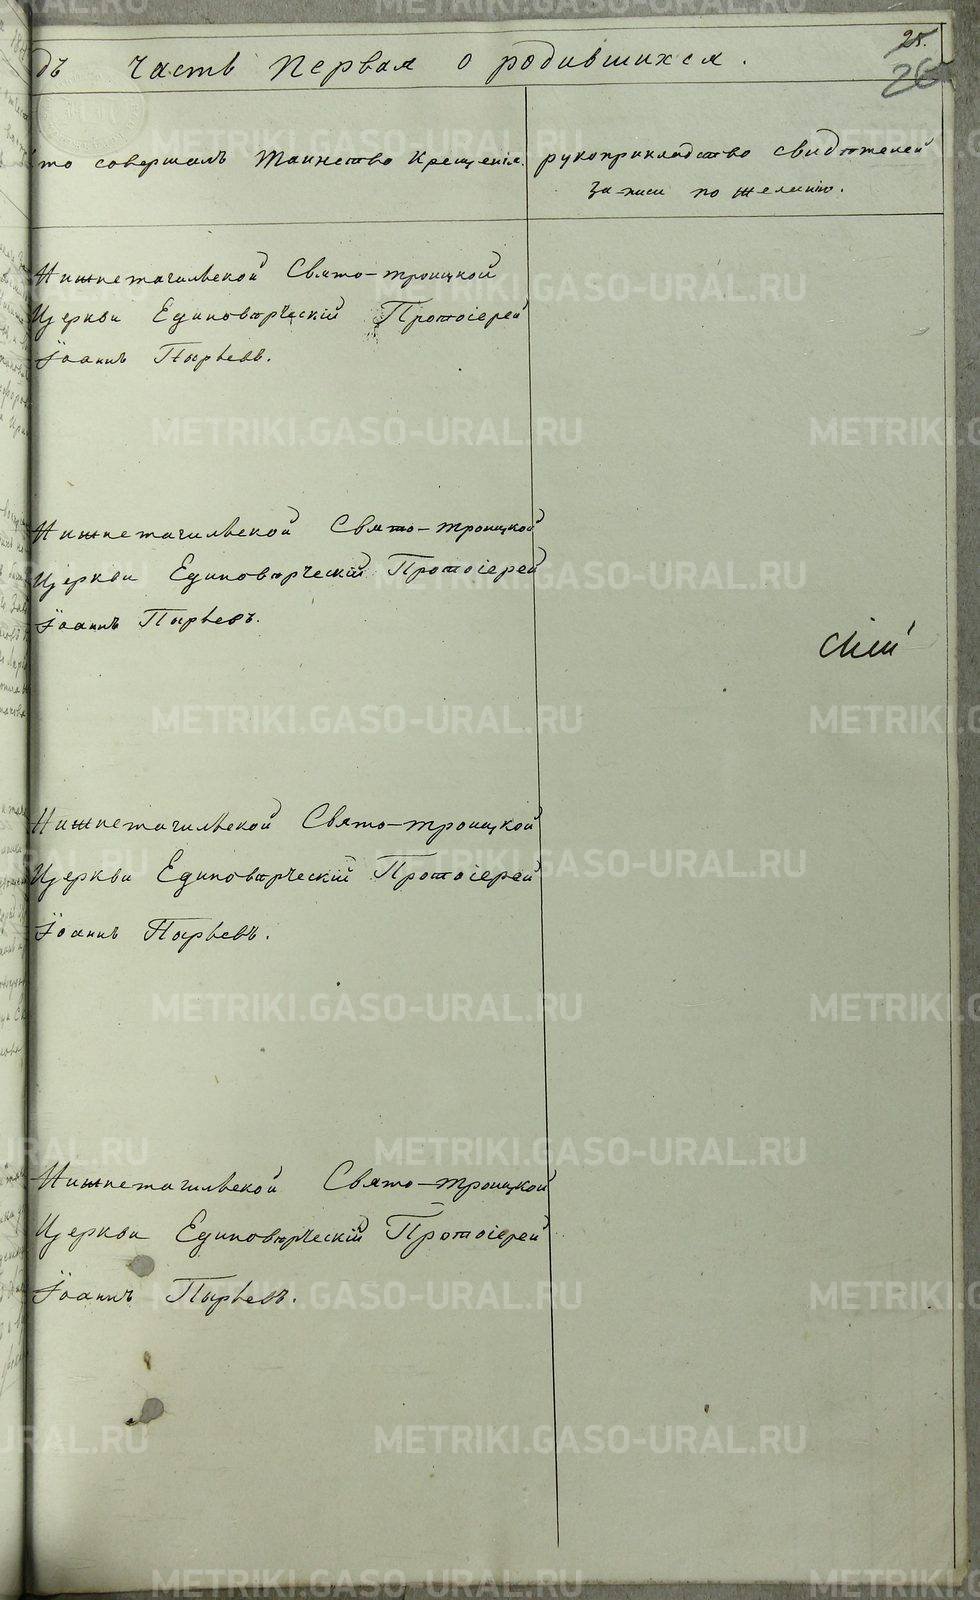 25.
26
дъ часть первая о родившихся.
кто совершалъ таинство крещенія.
рукоприкладство свидѣтелей
записи по желанію.
Нижнетагильской Свято-троицкой
Церкви Единовѣрческій Протоіерей
Іоаннъ Пырьевъ.
Нижнетагильской Свято-троицкой
Церкви Единовѣрческій Протоіерей
Іоаннъ Пырьевъ.
Нижнетагильской Свято-троицкой
Церкви Единовѣрческій Протоіерей
Іоаннъ Пырьевъ.
Нижнетагильской Свято-троицкой
Церкви Единовѣрческій Протоіерей
Іоаннъ Пырьевъ.
METRIKI.GASO-URAL.RU